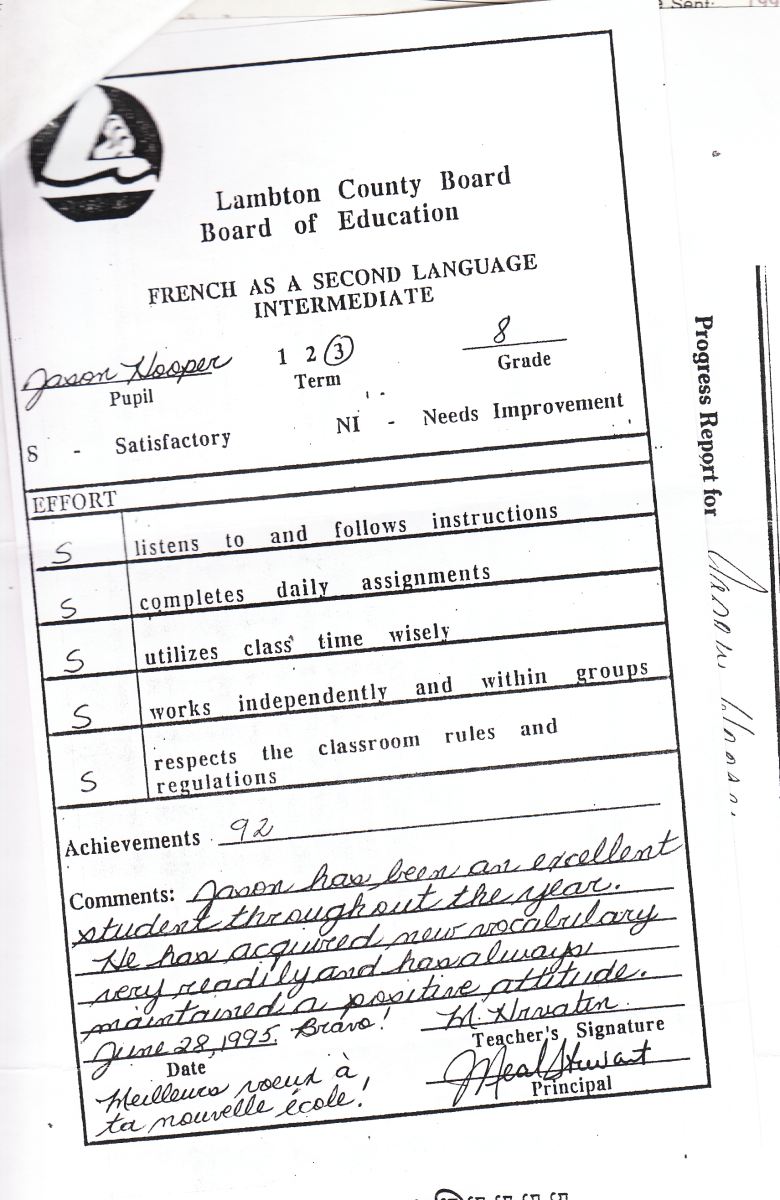 e Sent: 199
Lambton County Board
Board of Education
FRENCH AS A SECOND LANGUAGE
INTERMEDIATE
Jason Hooper 1 2 3 8
Pupil Term Grade
S - Satisfactory NI - Needs Improvement
EFFORT
S listens to and follows instructions
S completes daily assignments
S utilizes class time wisely
S works independently and within groups
S respects the classroom rules and
regulations
Achievements 92
Comments: Jason has been an excellent
student throughout the year.
He has acquired new vocabulary
very readily and has always
maintained a positive attitude.
June 28, 1995. Bravo! M. Hrvatin
Date Teacher's Signature
Meilleurs voeux à
ta nouvelle école! Stewart
Principal
Progress Report for